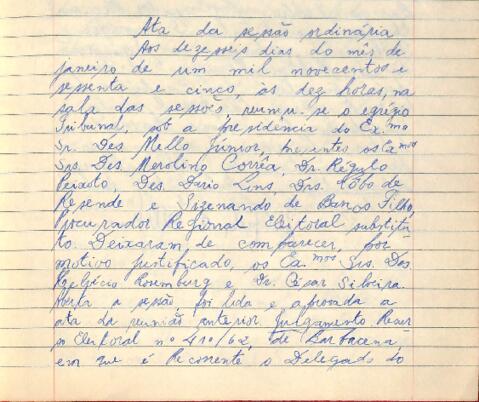 Ata da sessão ordinária
Aos dezesseis dias do mês de
janeiro de um mil novecentos e
sessenta e cinco, às dez horas, na
sala das sessões, reuniu-se o egrégio
Tribunal, sob a presidência do Ex.mo
Sr. Des. Mello Junior, presentes os Ex.mos
Srs. Des. Merolino Corrêa, Dr. Régulo
Peixoto, Des. Dario Lins, Drs. Lôbo de
Resende e Sizenando de Barros Filho,
Procurador Regional Eleitoral substitu
to. Deixaram de comparecer, por
motivo justificado, os Ex.mos Srs. Des.
Rosemburg e Dr. César Silveira
Aberta a sessão foi lida e aprovada a
ata da reunião anterior. Julgamento Recur
so Eleitoral nº 410/62, de Barbacena,
em que é Recorrente o Delegado do